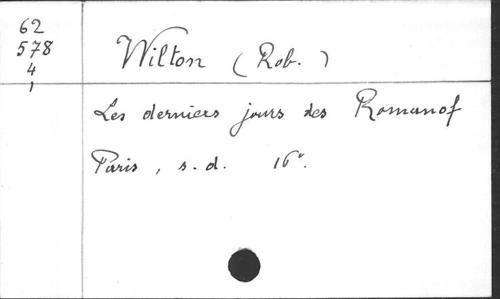 62
578
4
1
Wilton (Rob.)
Les derniers jours des Romanof
Paris, s.d. 16°.